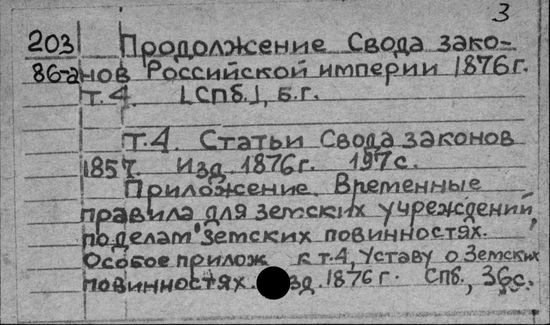 3
203 Продолжение Свода зако-
86-а нов Российской империи 1876г.
т.4. [СПб.], б.г.
т.4. Статьи Свода законов
1857. Изд. 1876г. 197с.
Приложение. Временные
правила для земских учреждений,
по делам земских повинностях.
Особое прилож к т.4, Уставу о Земских
повинностях. зд. 1876г. СПб., 36с.